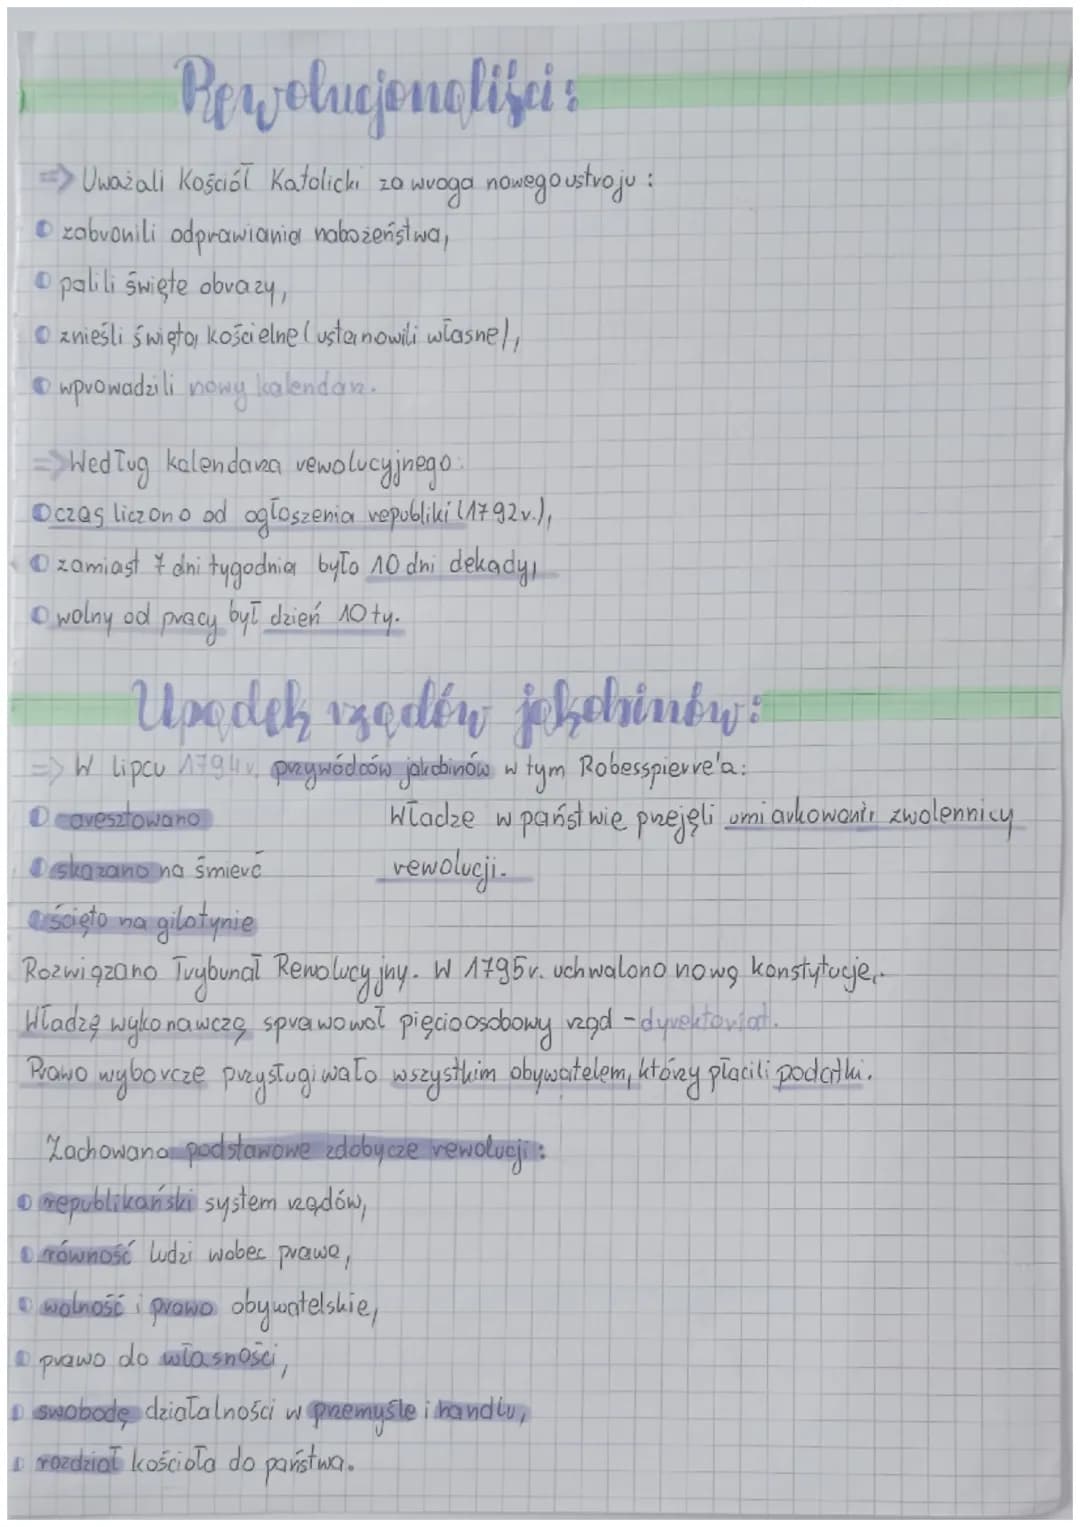 Rewolucjonaliści:
=> Uważali Kościół Katolicki za wroga nowego ustroju :
zabronili odprawiania nabożeństwa,
palili święte obrazy,
znieśli święta kościelne (ustanowili własne),
wprowadzili nowy kalendarz.
=> Według kalendarza rewolucyjnego:
czas liczono od ogłoszenia republiki (1792r.),
zamiast 7 dni tygodnia było 10 dni dekady,
wolny od pracy był dzień 10ty.
Upadek rządów jakobinów:
=> W lipcu 1794r. przywódców jakobinów w tym Robesspierre'a:
aresztowano
skazano na śmierć
ścięto na gilotynie
Władze w państwie przejęli umiarkowani zwolennicy
rewolucji.
Rozwiązano Trybunał Rewolucyjny. W 1795r. uchwalono nową konstytucję.
Władzę wykonawczą sprawował pięcioosobowy rząd - dyrektoriat.
Prawo wyborcze przysługiwało wszystkim obywatelem, którzy płacili podatki.
Zachowano podstawowe zdobycze rewolucji :
republikański system rządów,
równość ludzi wobec prawa,
wolność i prawo obywatelskie,
prawo do własności,
swobodę działalności w przemyśle i handlu,
rozdział kościoła do państwa.